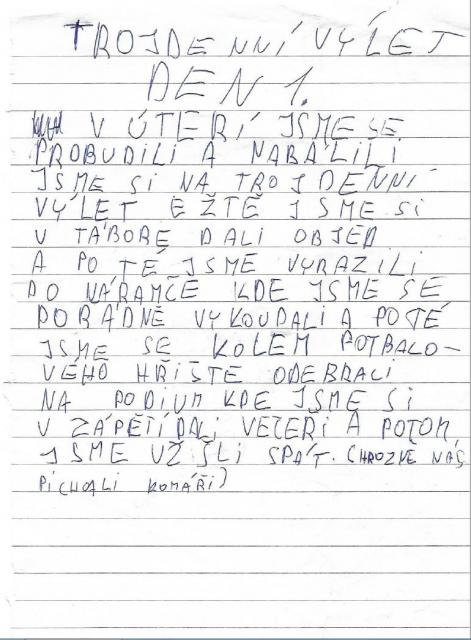 TROJDENNÍ VÝLET
DEN 1.
V ÚTERÍ JSME SE
PROBUDILI A NABALILI
JSME SI NA TROJDENNÍ
VÝLET EŽTĚ JSME SI
V TÁBORE DALI OBJED
A PO TÉ JSME VYRAZILI
DO NÁRAMČE KDE JSME SE
POŘÁDNĚ VYKOUPALI A POTÉ
JSME SE KOLEM FOTBALO-
VÉHO HŘIŠTĚ ODEBRALI
NA PODIUM KDE JSME SI
V ZÁPĚTÍ DALI VEČEŘI A POTOM
JSME UŽ ŠLI SPÁT. (HROZNĚ NÁS
PÍCHALI KOMÁŘI)